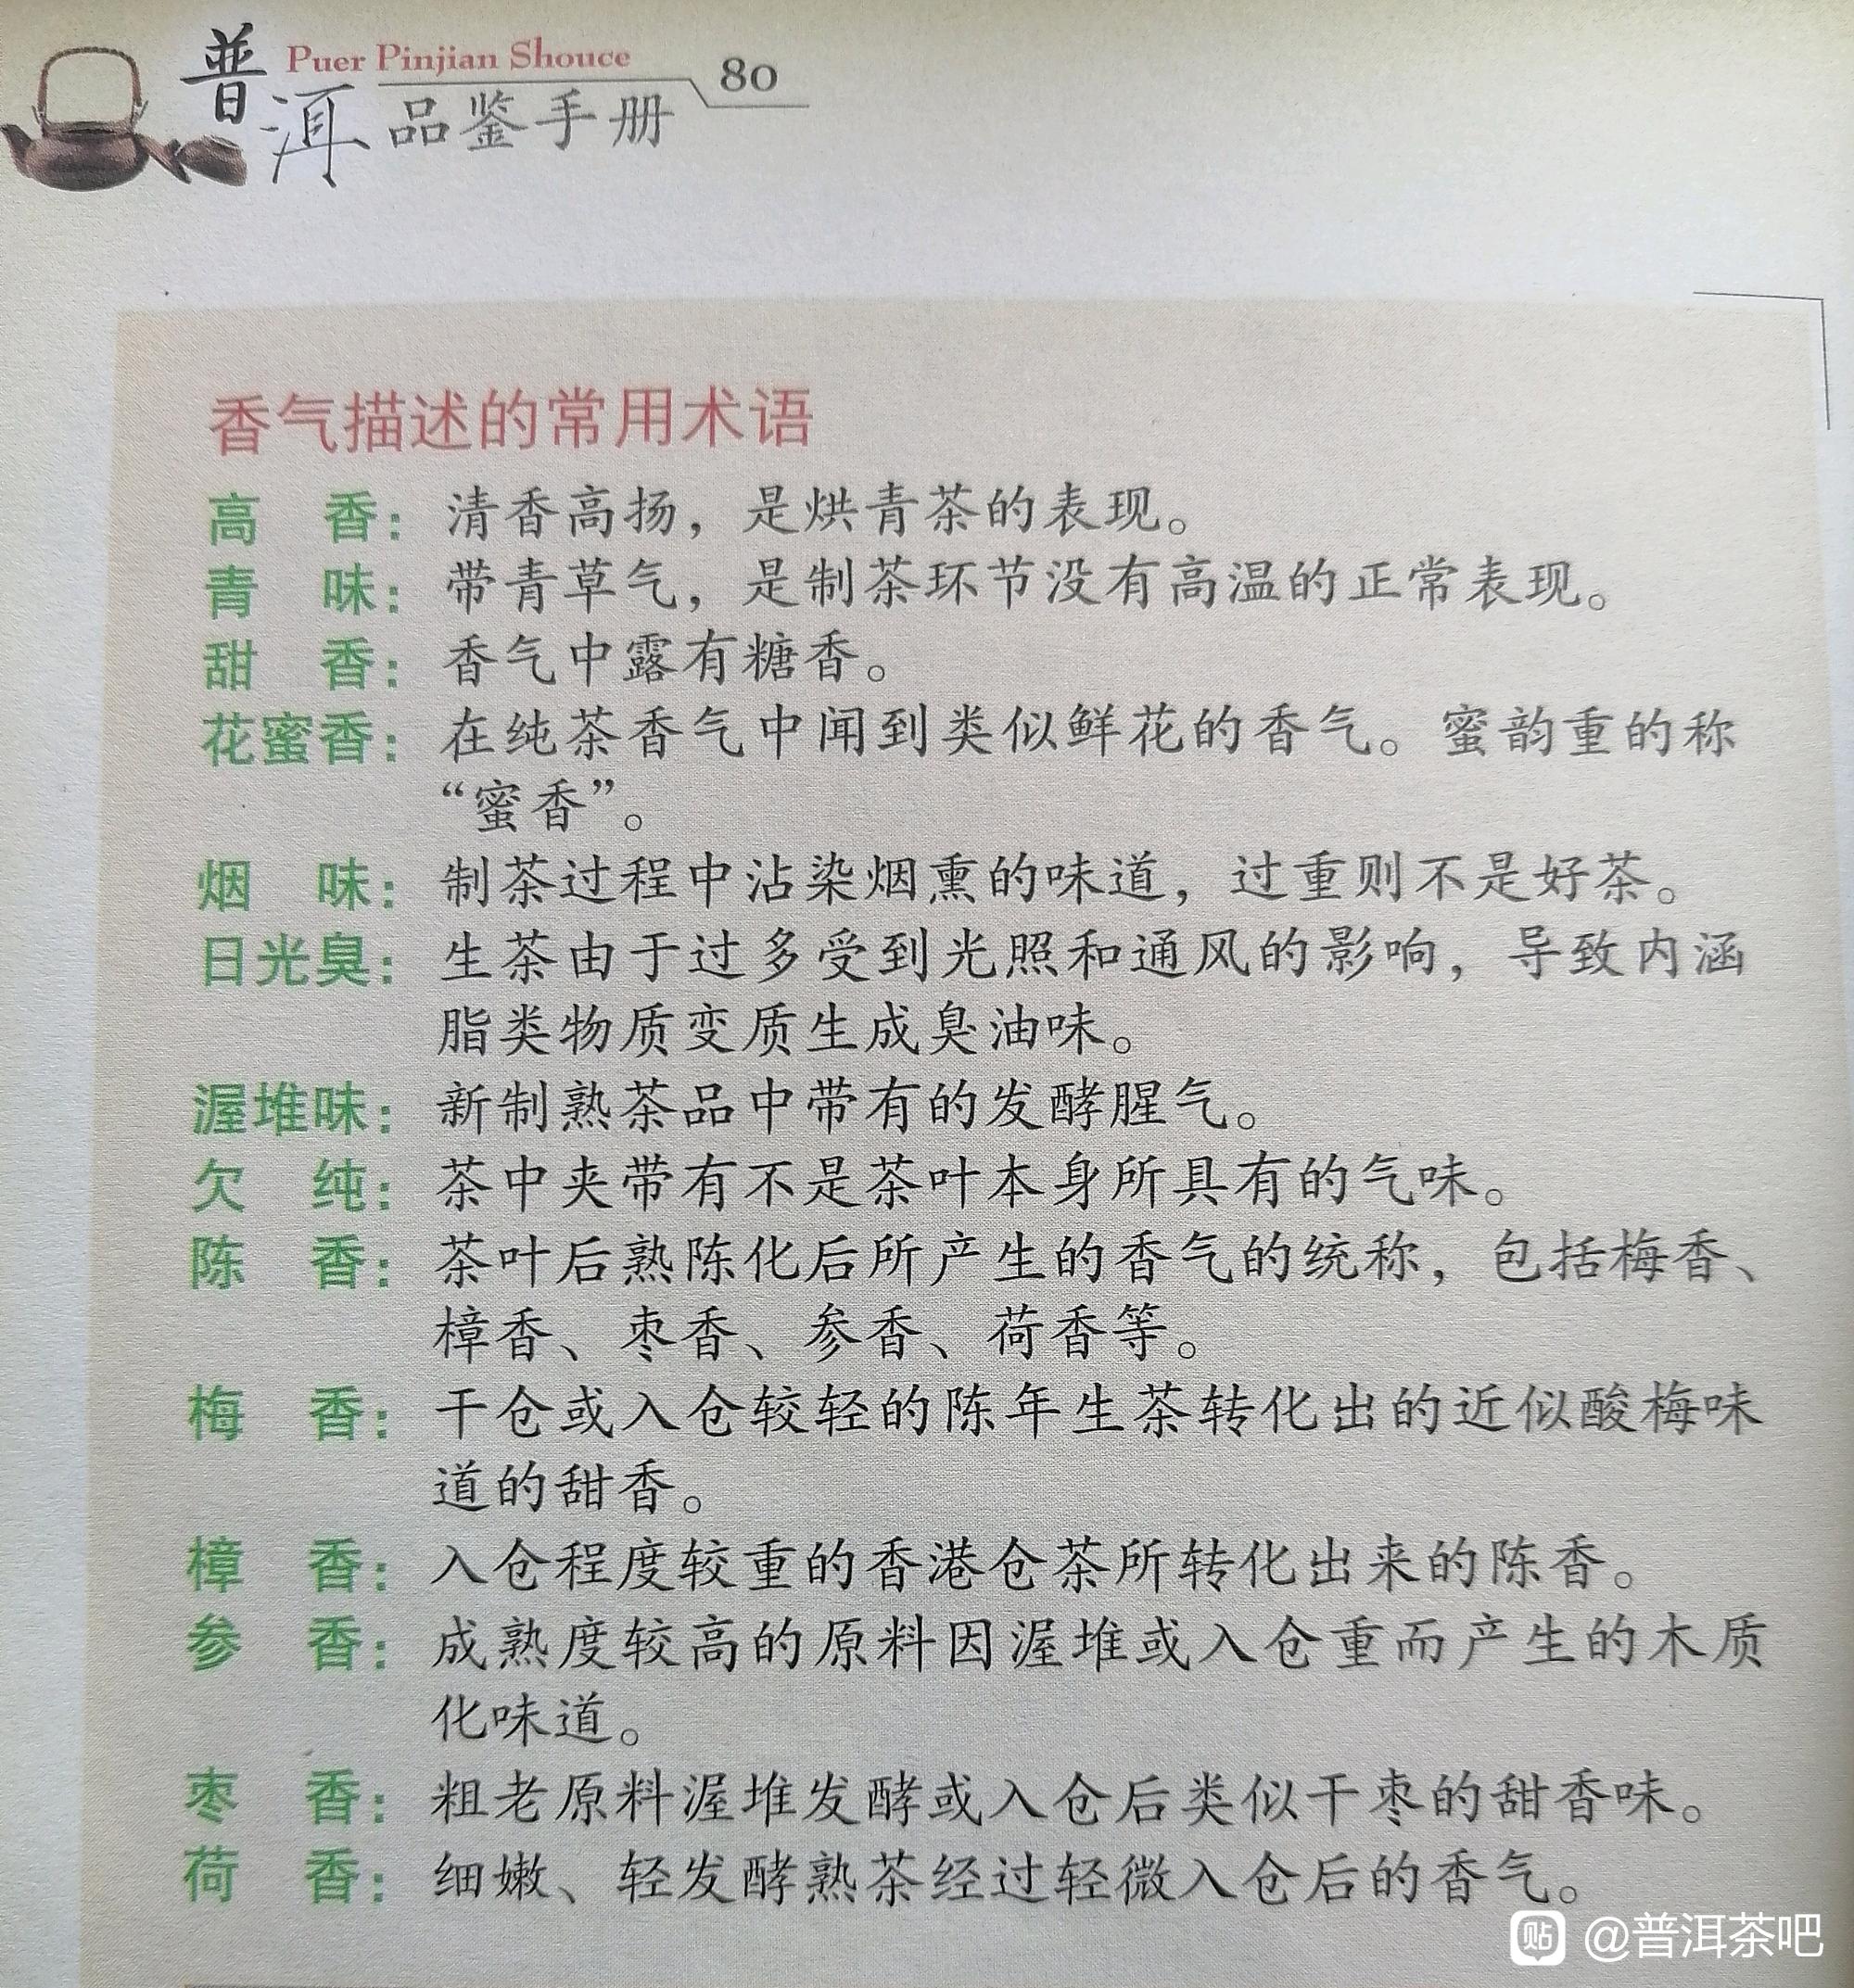 普洱
Puer Pinjian Shouce
品鉴手册
80
香气描述的常用术语
高 香：清香高扬，是烘青茶的表现。
青 味：带青草气，是制茶环节没有高温的正常表现。
甜 香：香气中露有糖香。
花蜜香：在纯茶香气中闻到类似鲜花的香气。蜜韵重的称
“蜜香”。
烟 味：制茶过程中沾染烟熏的味道，过重则不是好茶。
日光臭：生茶由于过多受到光照和通风的影响，导致内涵
脂类物质变质生成臭油味。
渥堆味：新制熟茶品中带有的发酵腥气。
欠 纯：茶中夹带有不是茶叶本身所具有的气味。
陈 香：茶叶后熟陈化后所产生的香气的统称，包括梅香、
樟香、枣香、参香、荷香等。
梅 香：干仓或入仓较轻的陈年生茶转化出的近似酸梅味
道的甜香。
樟 香：入仓程度较重的香港仓茶所转化出来的陈香。
参 香：成熟度较高的原料因渥堆或入仓重而产生的木质
化味道。
枣 香：粗老原料渥堆发酵或入仓后类似干枣的甜香味。
荷 香：细嫩、轻发酵熟茶经过轻微入仓后的香气。
贴 @普洱茶吧